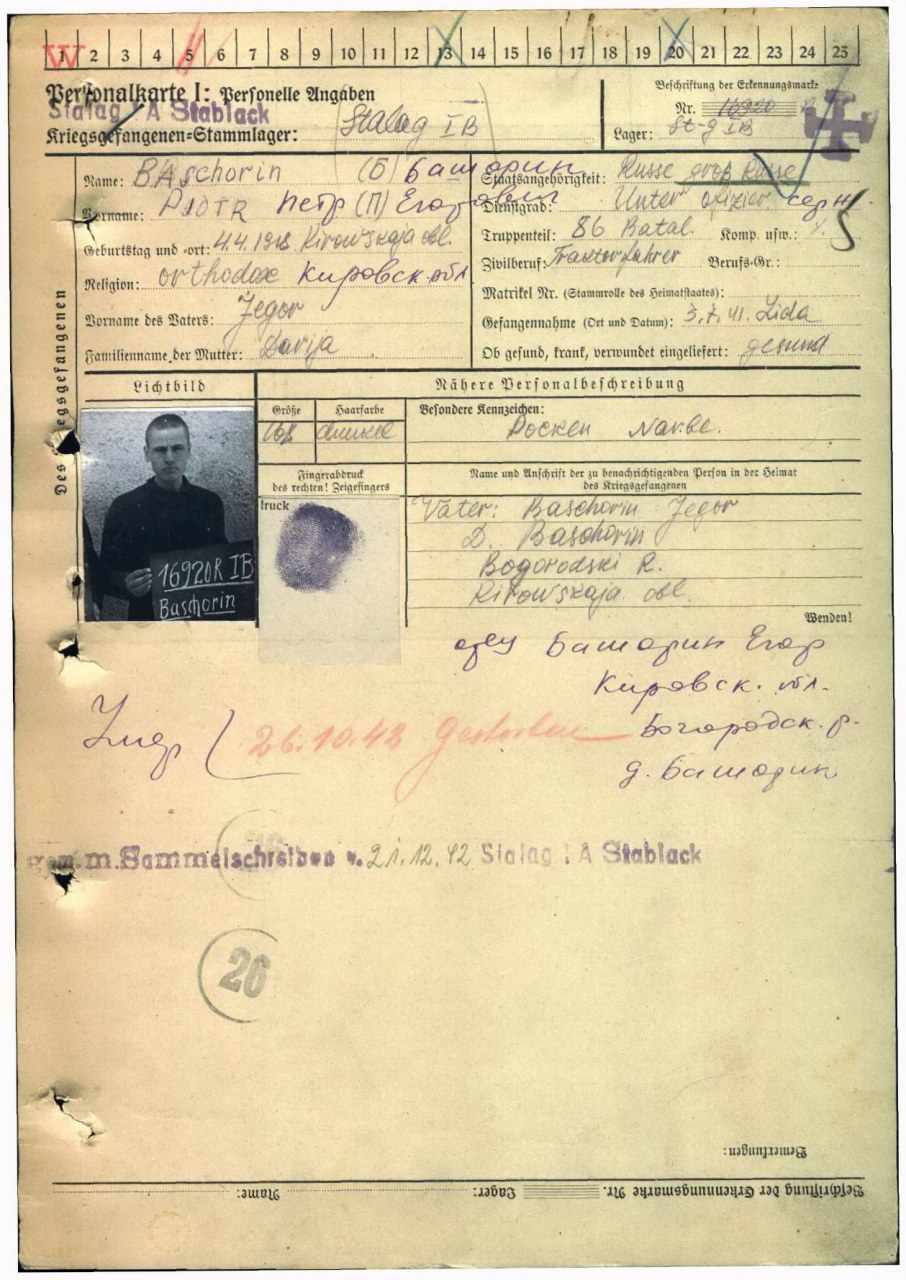 W
1 2 3 4 5 6 7 8 9 10 11 12 13 14 15 16 17 18 19 20 21 22 23 24 25
Personalkarte I: Personelle Angaben
Stalag I A Stablack
Kriegsgefangenen-Stammlager: Stalag IB
Beschriftung der Erkennungsmarke
Nr. 16920
Lager: St-g IB
Des Kriegsgefangenen
Name: BAschorin (Б) Башарин
Vorname: PIOTR Петр (П) Егорович
Geburtstag und -ort: 4.4.1918 Kirowskaja obl.
Religion: orthodox Кировск. обл
Vorname des Vaters: Jegor
Familienname der Mutter: Darja
Staatsangehörigkeit: Russe groß Russe
Dienstgrad: Unter ofizier. серж.
Truppenteil: 86 Batal. Komp. usw.:
5
Zivilberuf: Traktorfahrer Berufs-Gr.:
Matrikel Nr. (Stammrolle des Heimatstaates):
Gefangennahme (Ort und Datum): 3.7.41. Lida
Ob gesund, krank, verwundet eingeliefert: gesund
Lichtbild
Nähere Personalbeschreibung
Größe
168
Haarfarbe
dunkel
Besondere Kennzeichen:
Pocken Narbe.
Fingerabdruck
des rechten! Zeigefingers
druck
Name und Anschrift der zu benachrichtigenden Person in der Heimat
des Kriegsgefangenen
Vater: Baschorin Jegor
D. Baschorin
Bogorodski R.
Kirowskaja obl.
Wenden!
16920R IB
Baschorin
отец Башарин Егор
Кировск. обл.
Богородск. р.
д. Башарин
Умер
26.10.42 gestorben
gem. m. Sammelschreiben v. 21.12.42 Stalag I A Stablack
26
Bemerkungen:
Beschriftung der Erkennungsmarke Nr. Lager: Name: